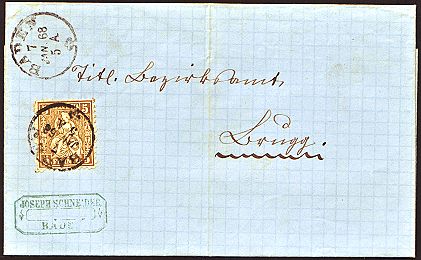 BADEN
7
JAN 68
5 A
Titl. Bezirksamt
Brugg.
5
BADEN
JOSEPH SCHNEIDER
BADEN